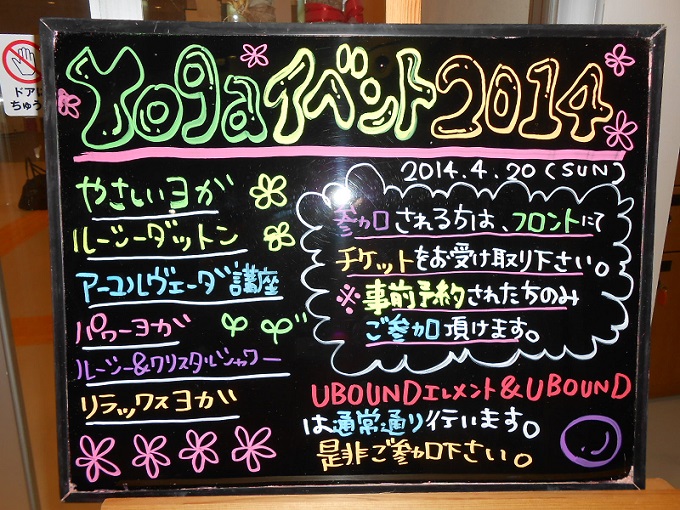 Yogaイベント2014
2014.4.20(SUN)
やさしいヨガ
ルーシーダットン
アーユルヴェーダ講座
パワーヨガ
ルーシー&クリスタルシャワー
リラックスヨガ
参加される方は、フロントにて
チケットをお受け取り下さい。
※事前予約されたちのみ
ご参加頂けます。
UBOUNDエレメント&UBOUND
は通常通り行います。
是非ご参加下さい。
ドアに
ちゅう